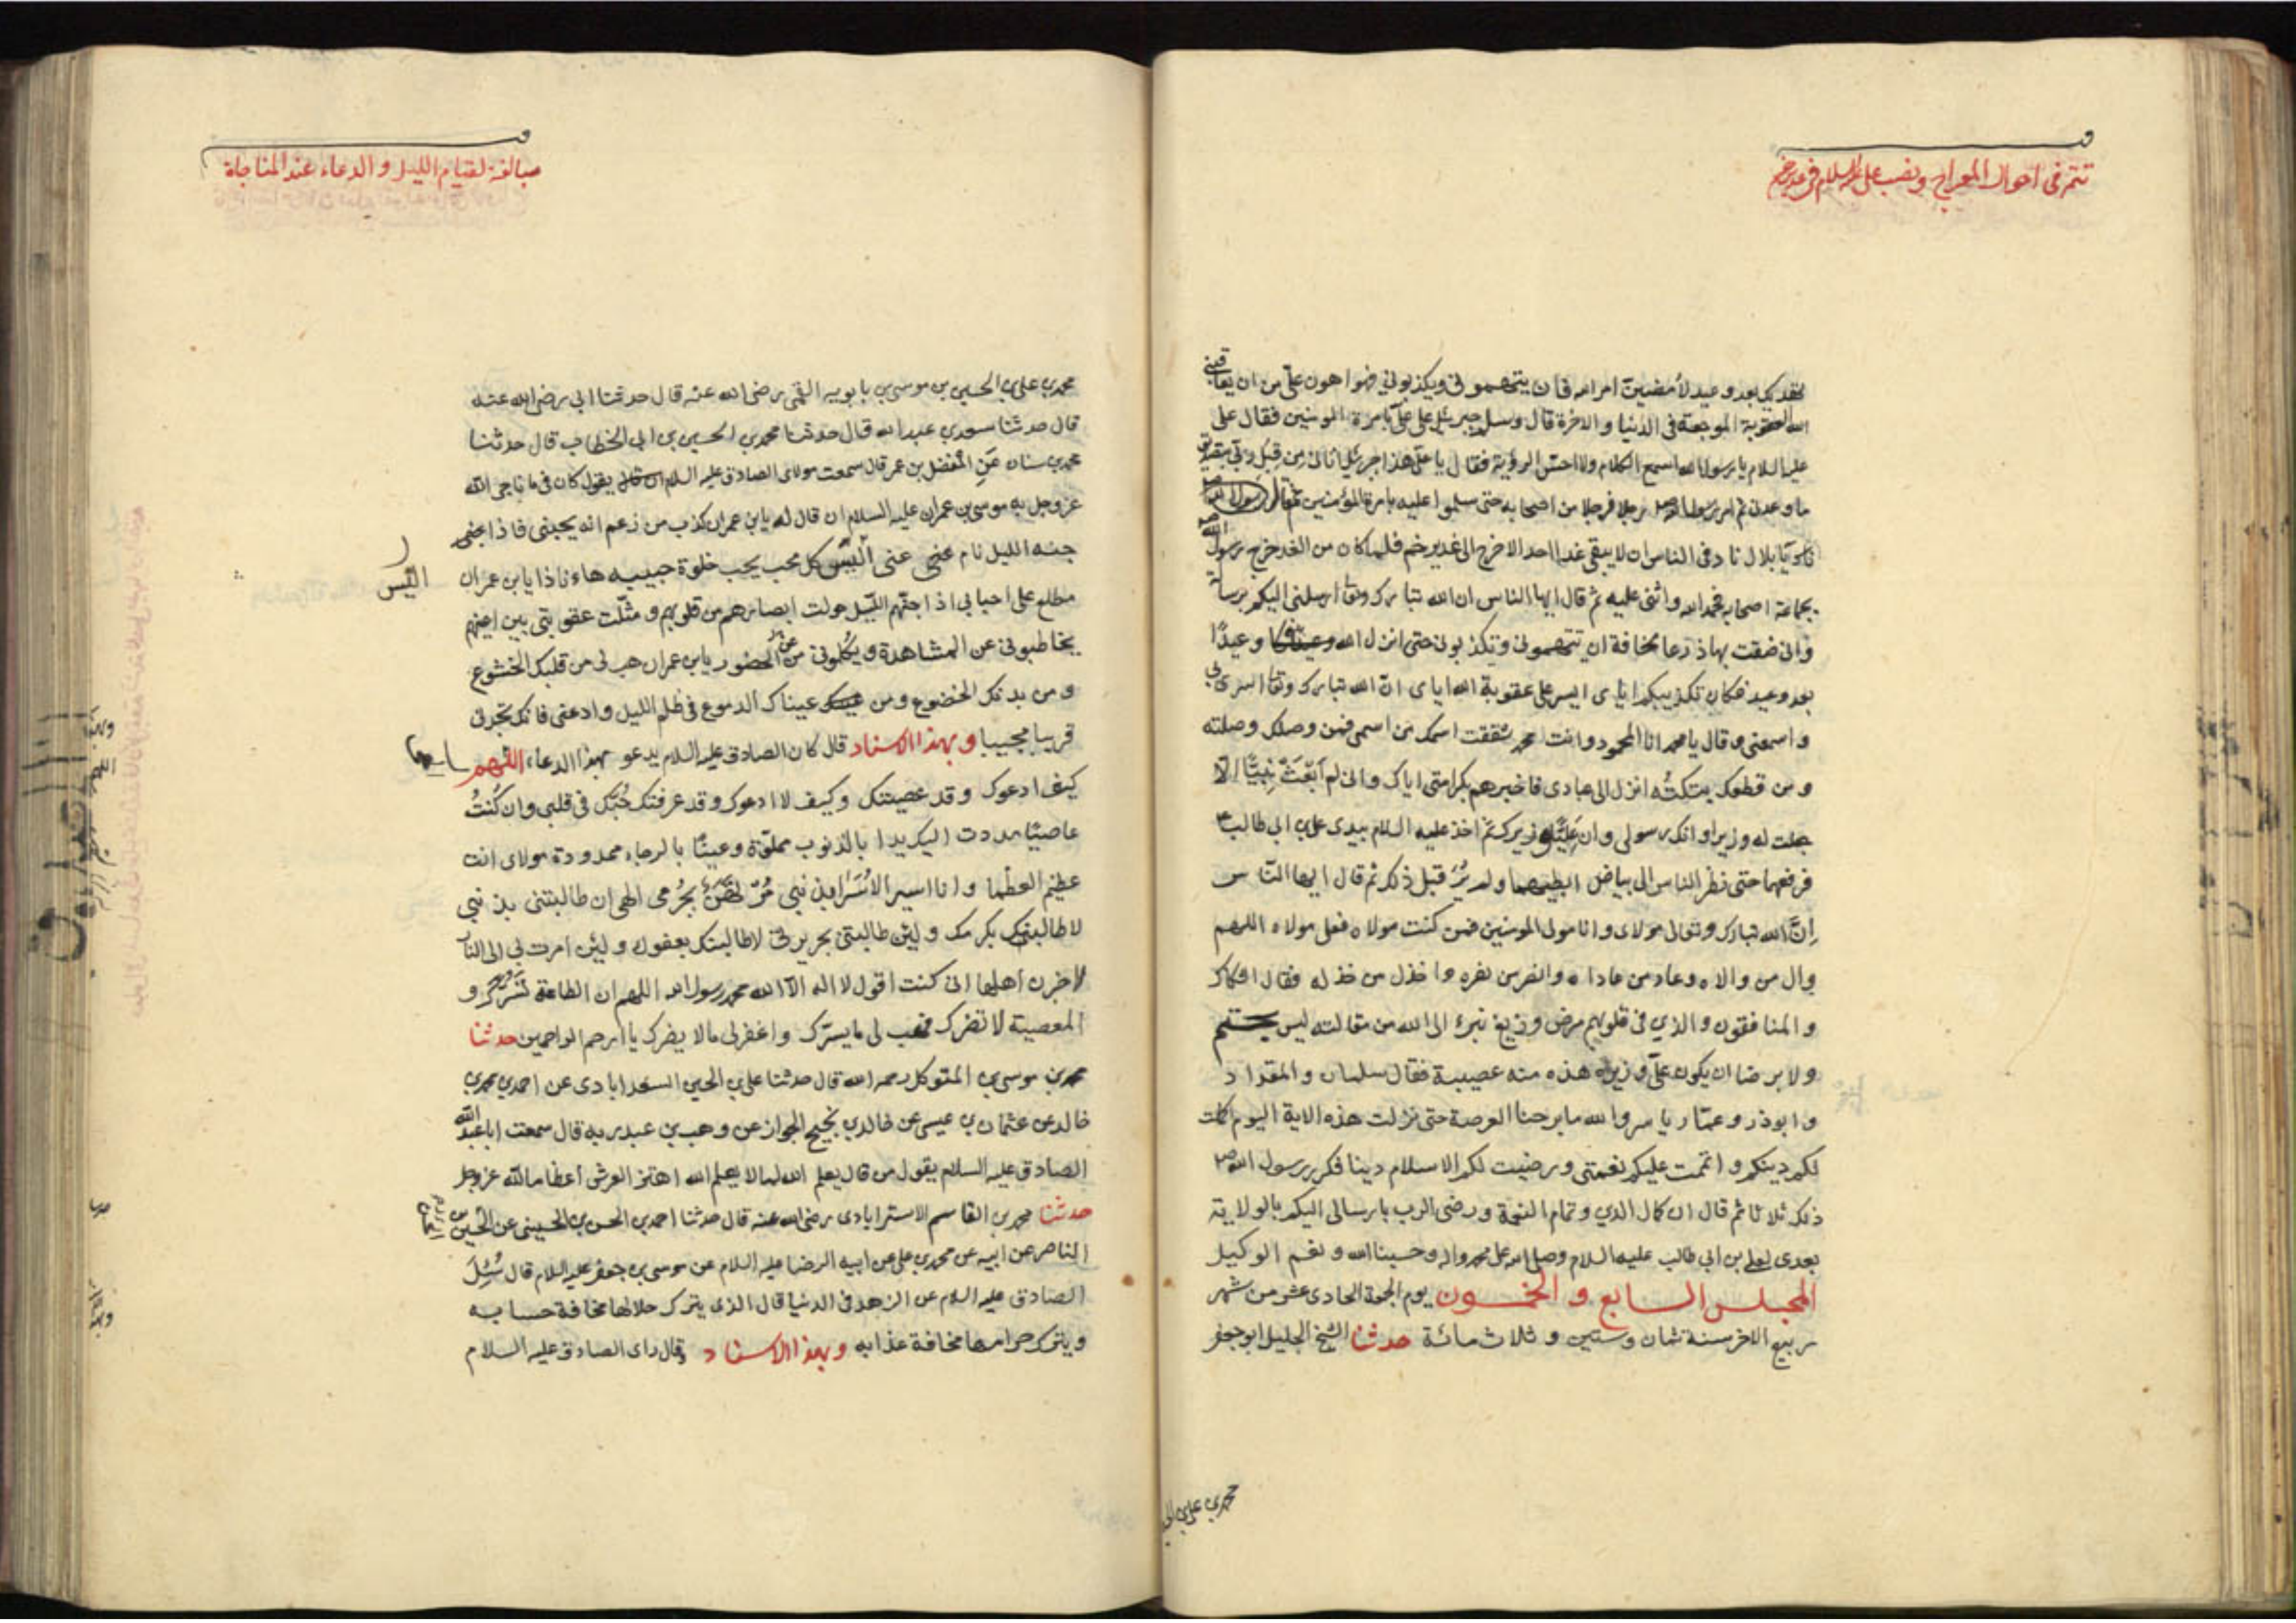 تتمه فی احوال المعراج ونصب علی علیه السلام فی غدیر خم
تهدید بعد وعید لأمضین امر الله فان یتهمونی ویکذبونی فهو اهون علی من ان یعاقبنی
الله العقوبة الموجعة فی الدنیا والاخرة قال وسلم جبرئیل علی علی بامرة المومنین فقال علی
علیه السلام یا رسول الله اسمع الکلام ولا احس الرؤیة فقال یا علی هذا جبرئیل اتانی من قبل ربی بتصدیق
ما وعدنی ثم امر رسول الله ص رجلا فرجلا من اصحابه حتی سلموا علیه بامرة المؤمنین ثم قال رسول الله ص
یا بلال ناد فی الناس ان لا یبقی غدا احد الا خرج الی غدیر خم فلما کان من الغد خرج رسول الله ص
بجماعة اصحابه فحمد الله واثنی علیه ثم قال ایها الناس ان الله تبارک وتعا ارسلنی الیکم برسالة
وانی ضقت بها ذرعا مخافة ان تتهمونی وتکذبونی حتی انزل الله وعیدًا
بعد وعید فکان تکذیبکم ایای ایسر علی عقوبة الله ایای انّ الله تبارک وتعا اسری بی
واسمعنی وقال یا محمد انا المحمود وانت محمد شققت اسمک من اسمی فمن وصلک وصلته
ومن قطعک بتکتُه انزل الی عبادی فاخبرهم بکرامتی ایاک وانی لم اَبْعَثْ نَبِیًّا الا
جعلت له وزیرا وانک رسولی وان عَلِیًّا وزیرک ثم اخذ علیه السلام بیدی علی بن ابی طالب ع
فرفعهما حتی نظر الناس الی بیاض ابطیهما ولم یُرَ قبل ذلک ثم قال ایها النّاس
اِنَّ الله تبارک وتعالی مولای وانا مولی المومنین فمن کنت مولاه فعلی مولاه اللهم
وال من والاه وعاد من عاداه وانصر من نصره واخذل من خذله فقال الشکاک
والمنافقون والذی فی قلوبهم مرض وزیغ نبرء الی الله من مقالته لیس بحتم
ولا یرضا ان یکون علیّ وزیره هذه منه عصبیة فقال سلمان والمقداد
وابوذر وعمّار یاسر والله ما برحنا العرصة حتی نزلت هذه الایة الیوم اکملت
لکم دینکم واتممت علیکم نعمتی ورضیت لکم الاسلام دینا فکرر رسول الله ص
ذلک ثلاثا ثم قال ان کمال الدین وتمام النعمة ورضی الرب بارسالی الیکم بالولایة
بعدی لعلی بن ابی طالب علیه السلام وصلی الله علی محمد واله وحسبنا الله ونعم الوکیل
المجلس السابع و الخمسون یوم الجمعة الحادی عشر من شهر
ربیع الاخر سنة ثمان وستین و ثلاث مائة حدثنا الشیخ الجلیل ابو جعفر
محمد بن علی بن الح
مبالغة لقیام اللیل و الدعاء عند المناجاة
محمد بن علی بن الحسین بن موسی بن بابویه القمی رضی الله عنه قال حدثنا ابی رضی الله عنه
قال حدثنا سعد بن عبد الله قال حدثنا محمد بن الحسین بن ابی الخطاب قال حدثنا
محمد بن سنان عَنِ المفضل بن عمر قال سمعت مولای الصادق علیه السلام یقول کان فی ما ناجی الله
عز وجل به موسی بن عمران علیه السلام ان قال له یابن عمران کذب من زعم انه یحبنی فاذا
جنه اللیل نام عنی اَلَیْسَ کل محب یحب خلوة حبیبه هاء ناذا یابن عمران
الیس
مطلع علی احبایی اذا جنّهم اللّیل حولت ابصارهم من قلوبهم ومثّلت عقوبتی بین اعینهم
یخاطبونی عن المشاهدة ویکلمونی عن الحضور یابن عمران هب لی من قلبک الخشوع
ومن بدنک الخضوع ومن عیناک الدموع فی ظلم اللیل وادعنی فانک تجدنی
قریبا مجیبا وبهذا الاسناد قال کان الصادق علیه السلام یدعو بهذا الدعاء اللّهم
کیف ادعوک وقد عصیتک وکیف لا ادعوک وقد عرفتک حُبُّک فی قلبی وان کُنتُ
عاصیًا مددت الیک یدا بالذنوب مملوّة وعینًا بالرجاء ممدودة مولای انت
عظیم العظما وانا اسیر الاُسَرَا بذنبی مُرتَهَنٌ بجُرمی الهی ان طالبتنی بذنبی
لاطالبنک بکرمک ولئن طالبتنی بجریرتی لاطالبنک بعفوک ولئن امرت بی الی النار
لاخبرن اهلها انی کنت اقول لا اله الا الله محمد رسول الله اللهم ان الطاعة تَسُرُّک و
المعصیة لا تضرک فهب لی ما یسرّک واغفر لی ما لا یضرک یا ارحم الراحمین حدثنا
محمد بن موسی بن المتوکل رحمه الله قال حدثنا علی بن الحسین السعدابادی عن احمد بن محمد بن
خالد عن عثمان بن عیسی عن خالد بن نجیح الجواز عن وهب بن عبد ربه قال سمعت ابا عبد الله
الصادق علیه السلام یقول من قال یعلم الله لما لا یعلم الله اهتز العرش اعظاما لله عز وجل
حدثنا محمد بن القاسم الاسترابادی رضی الله عنه قال حدثنا احمد بن الحسن بن الحسینی عن الحسن بن
الناصر عن ابیه عن محمد بن علی عن ابیه الرضا علیه السلام عن موسی بن جعفر علیه السلام قال سُئِلَ
الصادق علیه السلام عن الزهد فی الدنیا قال الذی یترک حلالها مخافة حسابه
ویترک حرامها مخافة عذابه وبهذا الاسناد قال رای الصادق علیه السلام